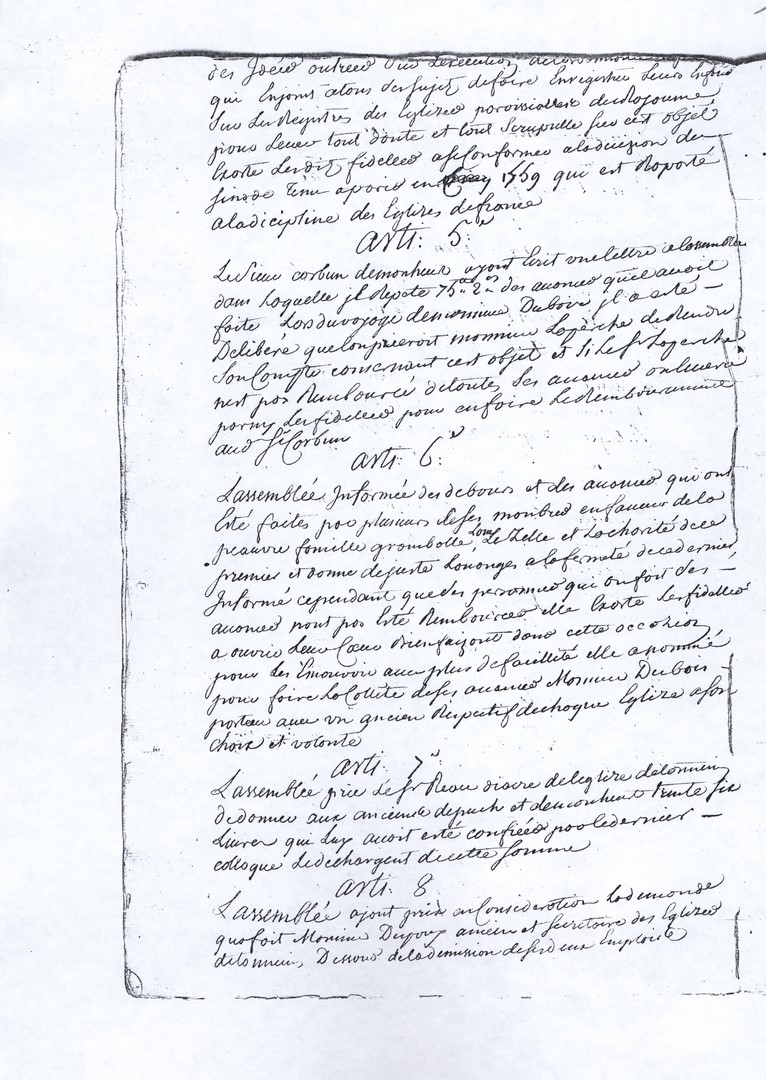 des Idées outrees Sur Lexecution
qui Enjoint atous Ses sujet defaire Enregistrer Leurs Enfans
Sur Les Registres des Eglizes paroissialles du Royaume
pour Lever tout doute et tout Scrupulle sur cet objet
Exorte Lesdit fidelles a se Conformer aladecision du
Sinode Tenu aparis en 1559 qui est Raporté
aladicipline des Eglizes defrance
Arti: 5.e
Le Sieur corbun demonheur ayant Ecrit une lettre alassemblée
dans Laquelle jl Repete 75 2 des avances quil avoit
faite Lors du voyage de monsieur Dubois jl a esté –
Deliberé que lon prieroit monsieur Lagerche de Rendre
Son Compte consernant cest objet et Si Le Sr Lagerche
nest pas Rembourcé detoutes Ses avances on levera
parmy Les fidelles pour en faire Le Rembourcement
aud Sr Corbun
Arti: 6.e
Lassemblée Informée des debours et des avances qui ont
Eté faites par plusieurs deses membres en faveur de la
pauvre famille grambolle Loue Le Zelle et La charité de ce
premier et donne dejuste Louanges a la fermeté de ce dernier
Informé cependant que des personnes qui on fait des –
avances nont pas Eté Rembourcées elle Exorte Les fidelles
a ouvrir Leur Cœur Bienfaizant dans cette occazion
pour Les Emouvoir avec plus de facillité elle a nommé
pour faire La Collete deses avances Monsieur Dubois –
pasteur avec un ancien Respectif de chaque Eglize a son
choix et volonté
Arti. 7.e
Lassemblée prie Le Sr Reau diacre de leglize detonnein
dedonner aux anciens depuch et demonheur trente six
Livres qui Luy avoit esté confiées par le dernier –
colloque Le dechargent de cette Somme
Arti. 8
Lassemblée ajant prise en Consideration La demande
que fait Monsieur Dupouy ancien et Secretaire des Eglizes
detonnein, Dessous de la demission de ses deux Emploits